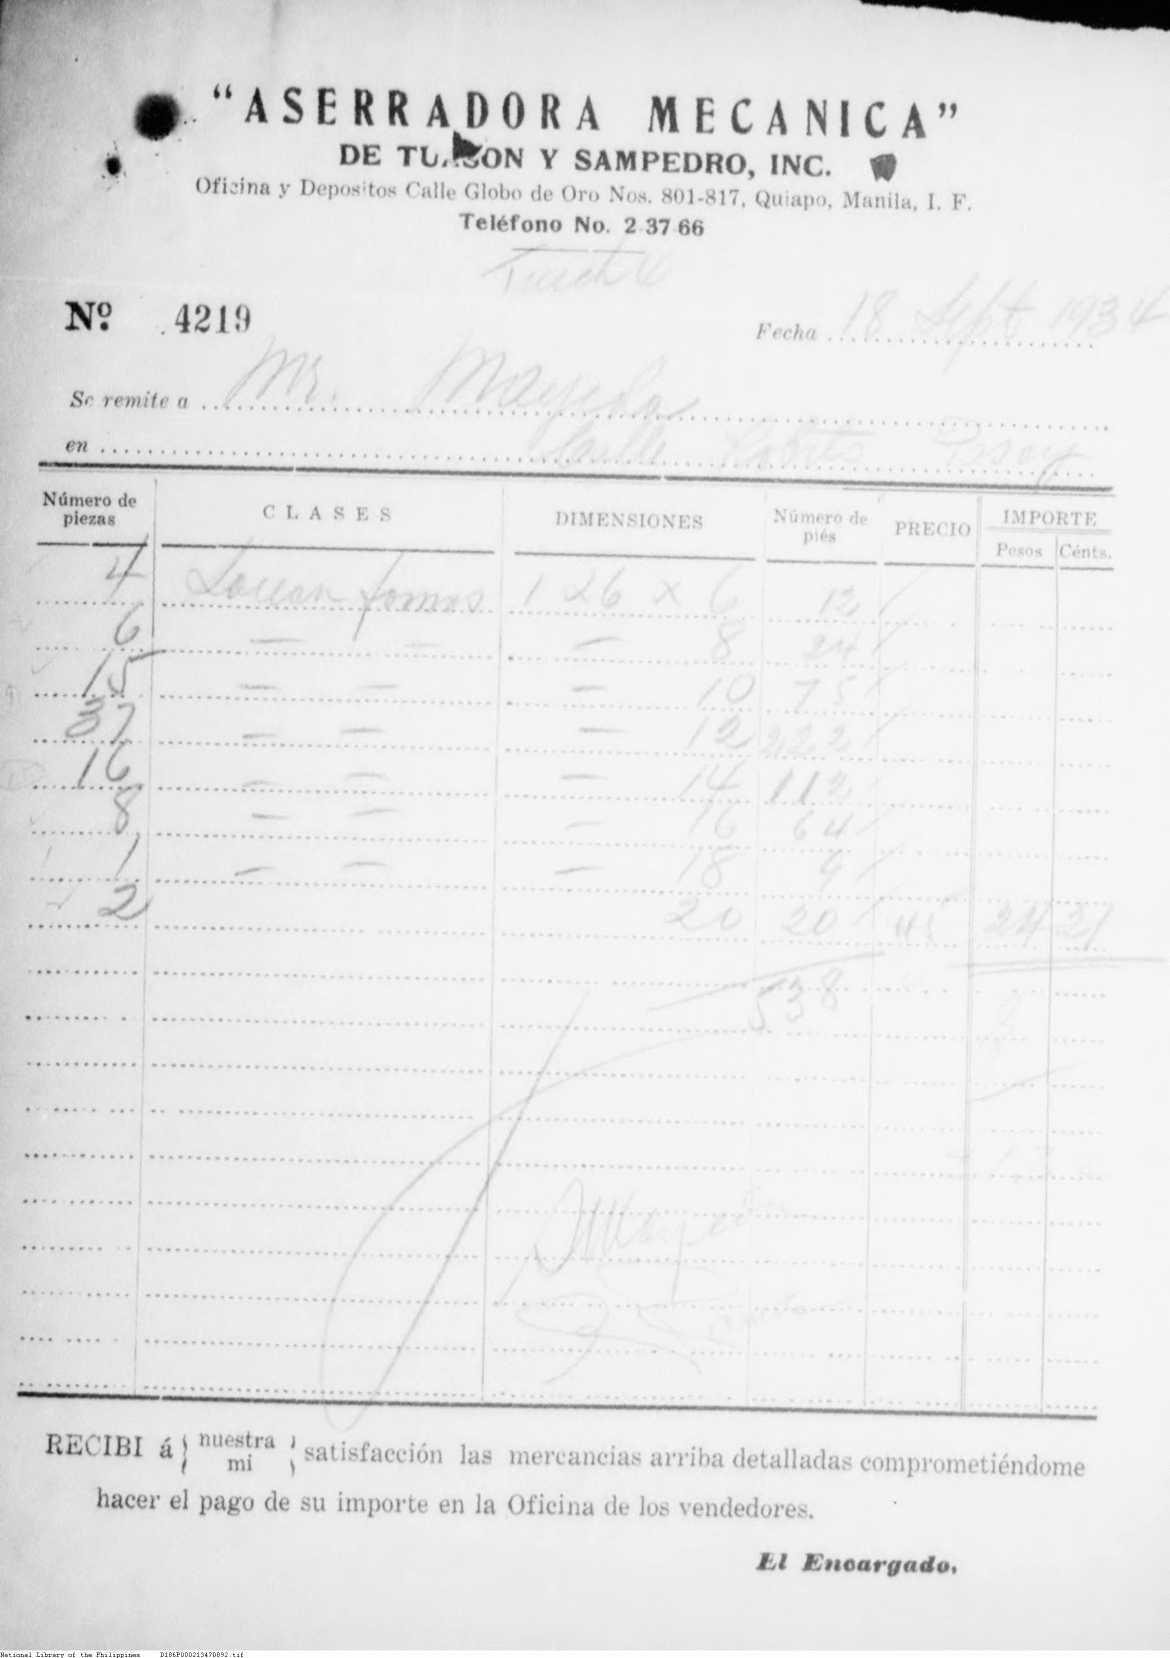 "ASERRADORA MECANICA"
DE TUASON Y SAMPEDRO, INC.
Oficina y Depositos Calle Globo de Oro Nos. 801-817, Quiapo, Manila, I. F.
Teléfono No. 2 37 66
Nº. 4219
Fecha 18 Sept 1934
Se remite a Mr.
en Calle Pasay
Número de piezas CLASES DIMENSIONES Número de piés PRECIO IMPORTE
Pesos Cénts.
4 Lauan 1 x 6 x 6 12
6 — — — 8 24
15 — — — 10 75
37 — — — 12 222
16 — — — 14 112
8 — — — 16 64
1 — — — 18 9
2 20 20 45 24 21
538
RECIBI á nuestra satisfacción las mercancias arriba detalladas comprometiéndome
mi
hacer el pago de su importe en la Oficina de los vendedores.
El Encargado,
National Library of the Philippines D186P000213470892.tif